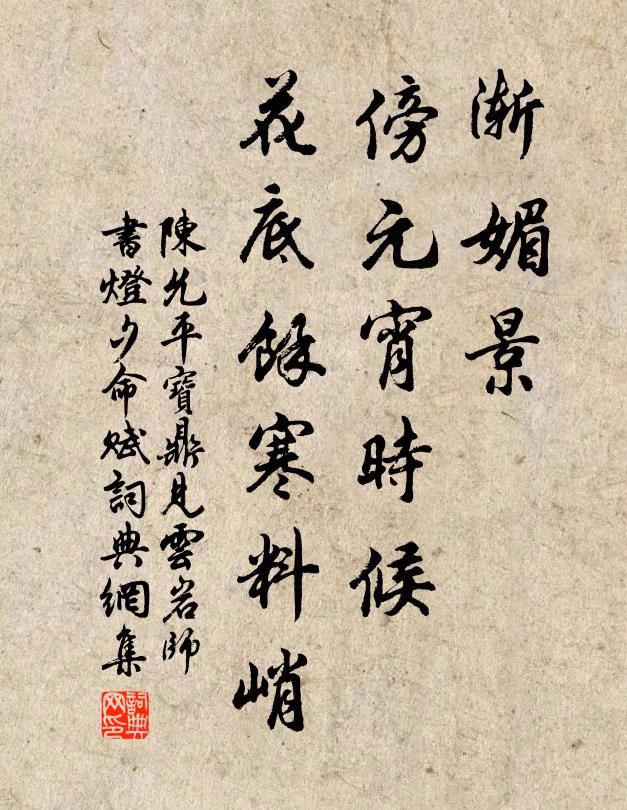 漸媚景
傍元宵時候
花底餘寒料峭
陳允平寶鼎見雲岩師
書燈夕命賦詞典網集
詞典网印